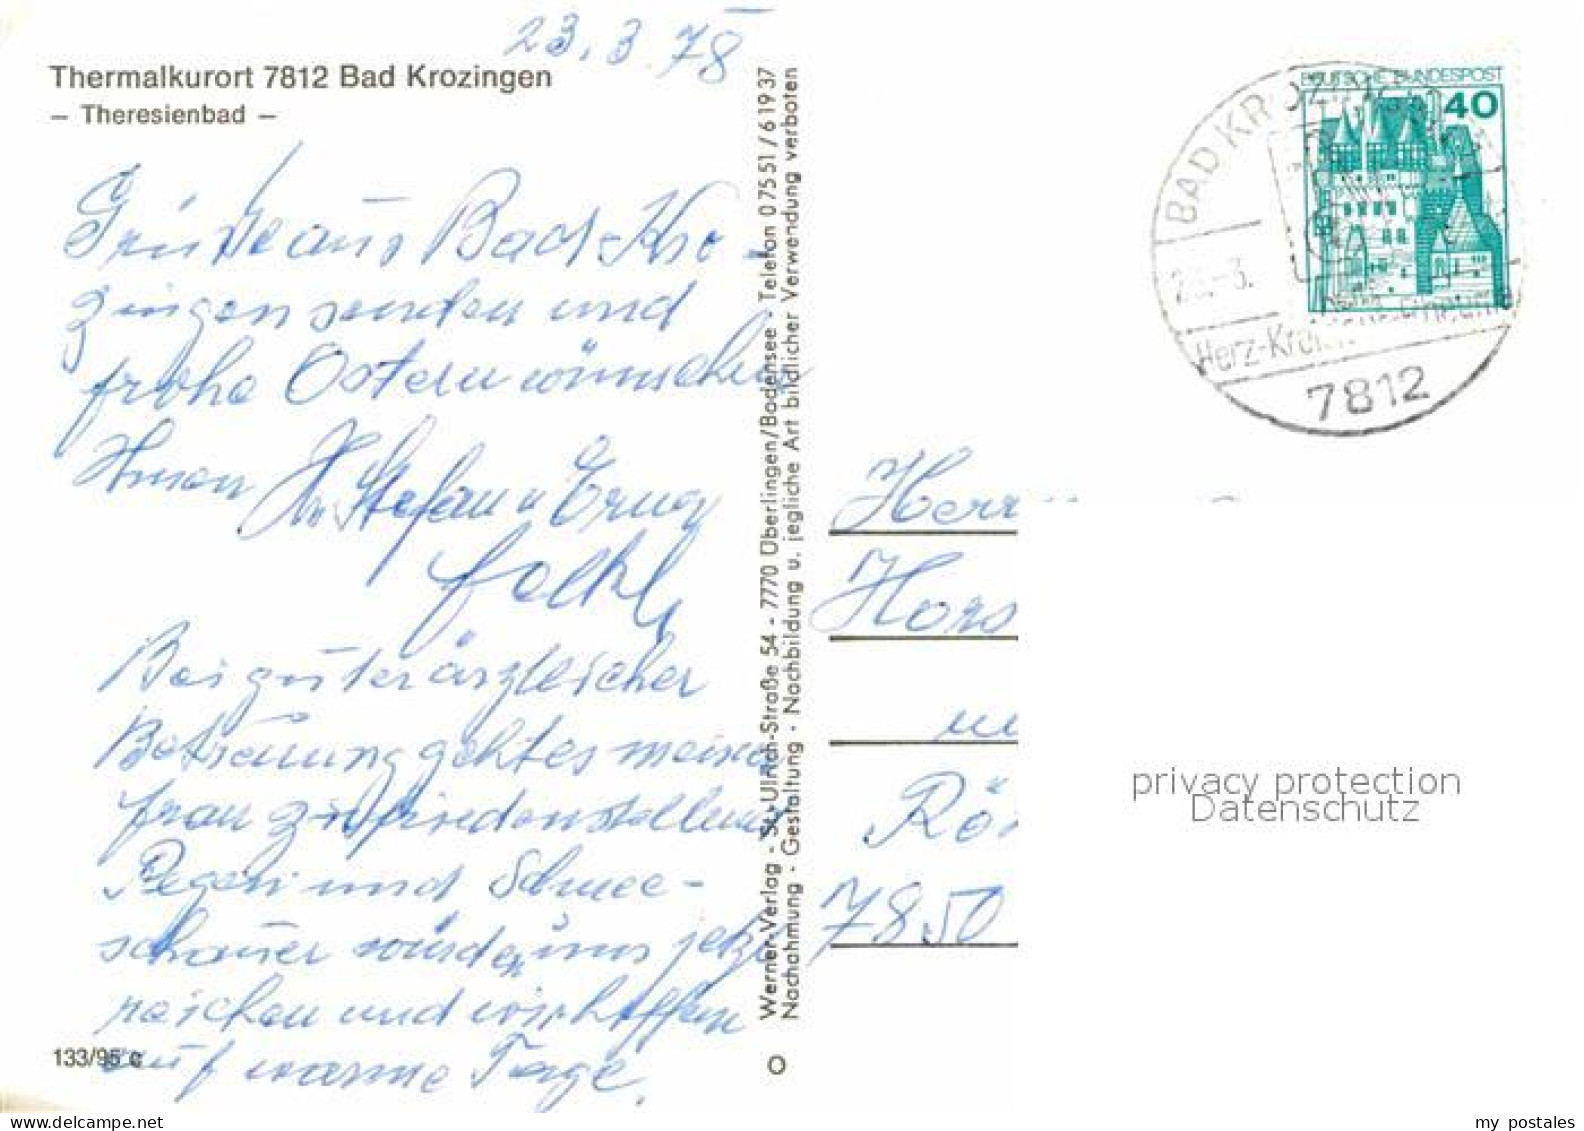 23.3.78
Thermalkurort 7812 Bad Krozingen
– Theresienbad –
Grüße aus Bad Kro-
zingen senden und
frohe Ostern wünschen
Ihnen
Stefan u Erna
Bei guter ärztlicher
Betreuung geht es meiner
Frau zufriedenstellend
Regen und Schnee-
schauer würden uns jetzt
reichen und wir hoffen
auf warme Tage.
133/95 c
Werner-Verlag - St.-Ulrich-Straße 54 - 7770 Überlingen/Bodensee - Telefon 07551/61937
Nachahmung - Gestaltung - Nachbildung u. jegliche Art bildlicher Verwendung verboten
DEUTSCHE BUNDESPOST
40
BAD KROZINGEN
Herz-
7812
Herr
Hors
Rö
7850
privacy protection
Datenschutz
www.delcampe.net
my postales